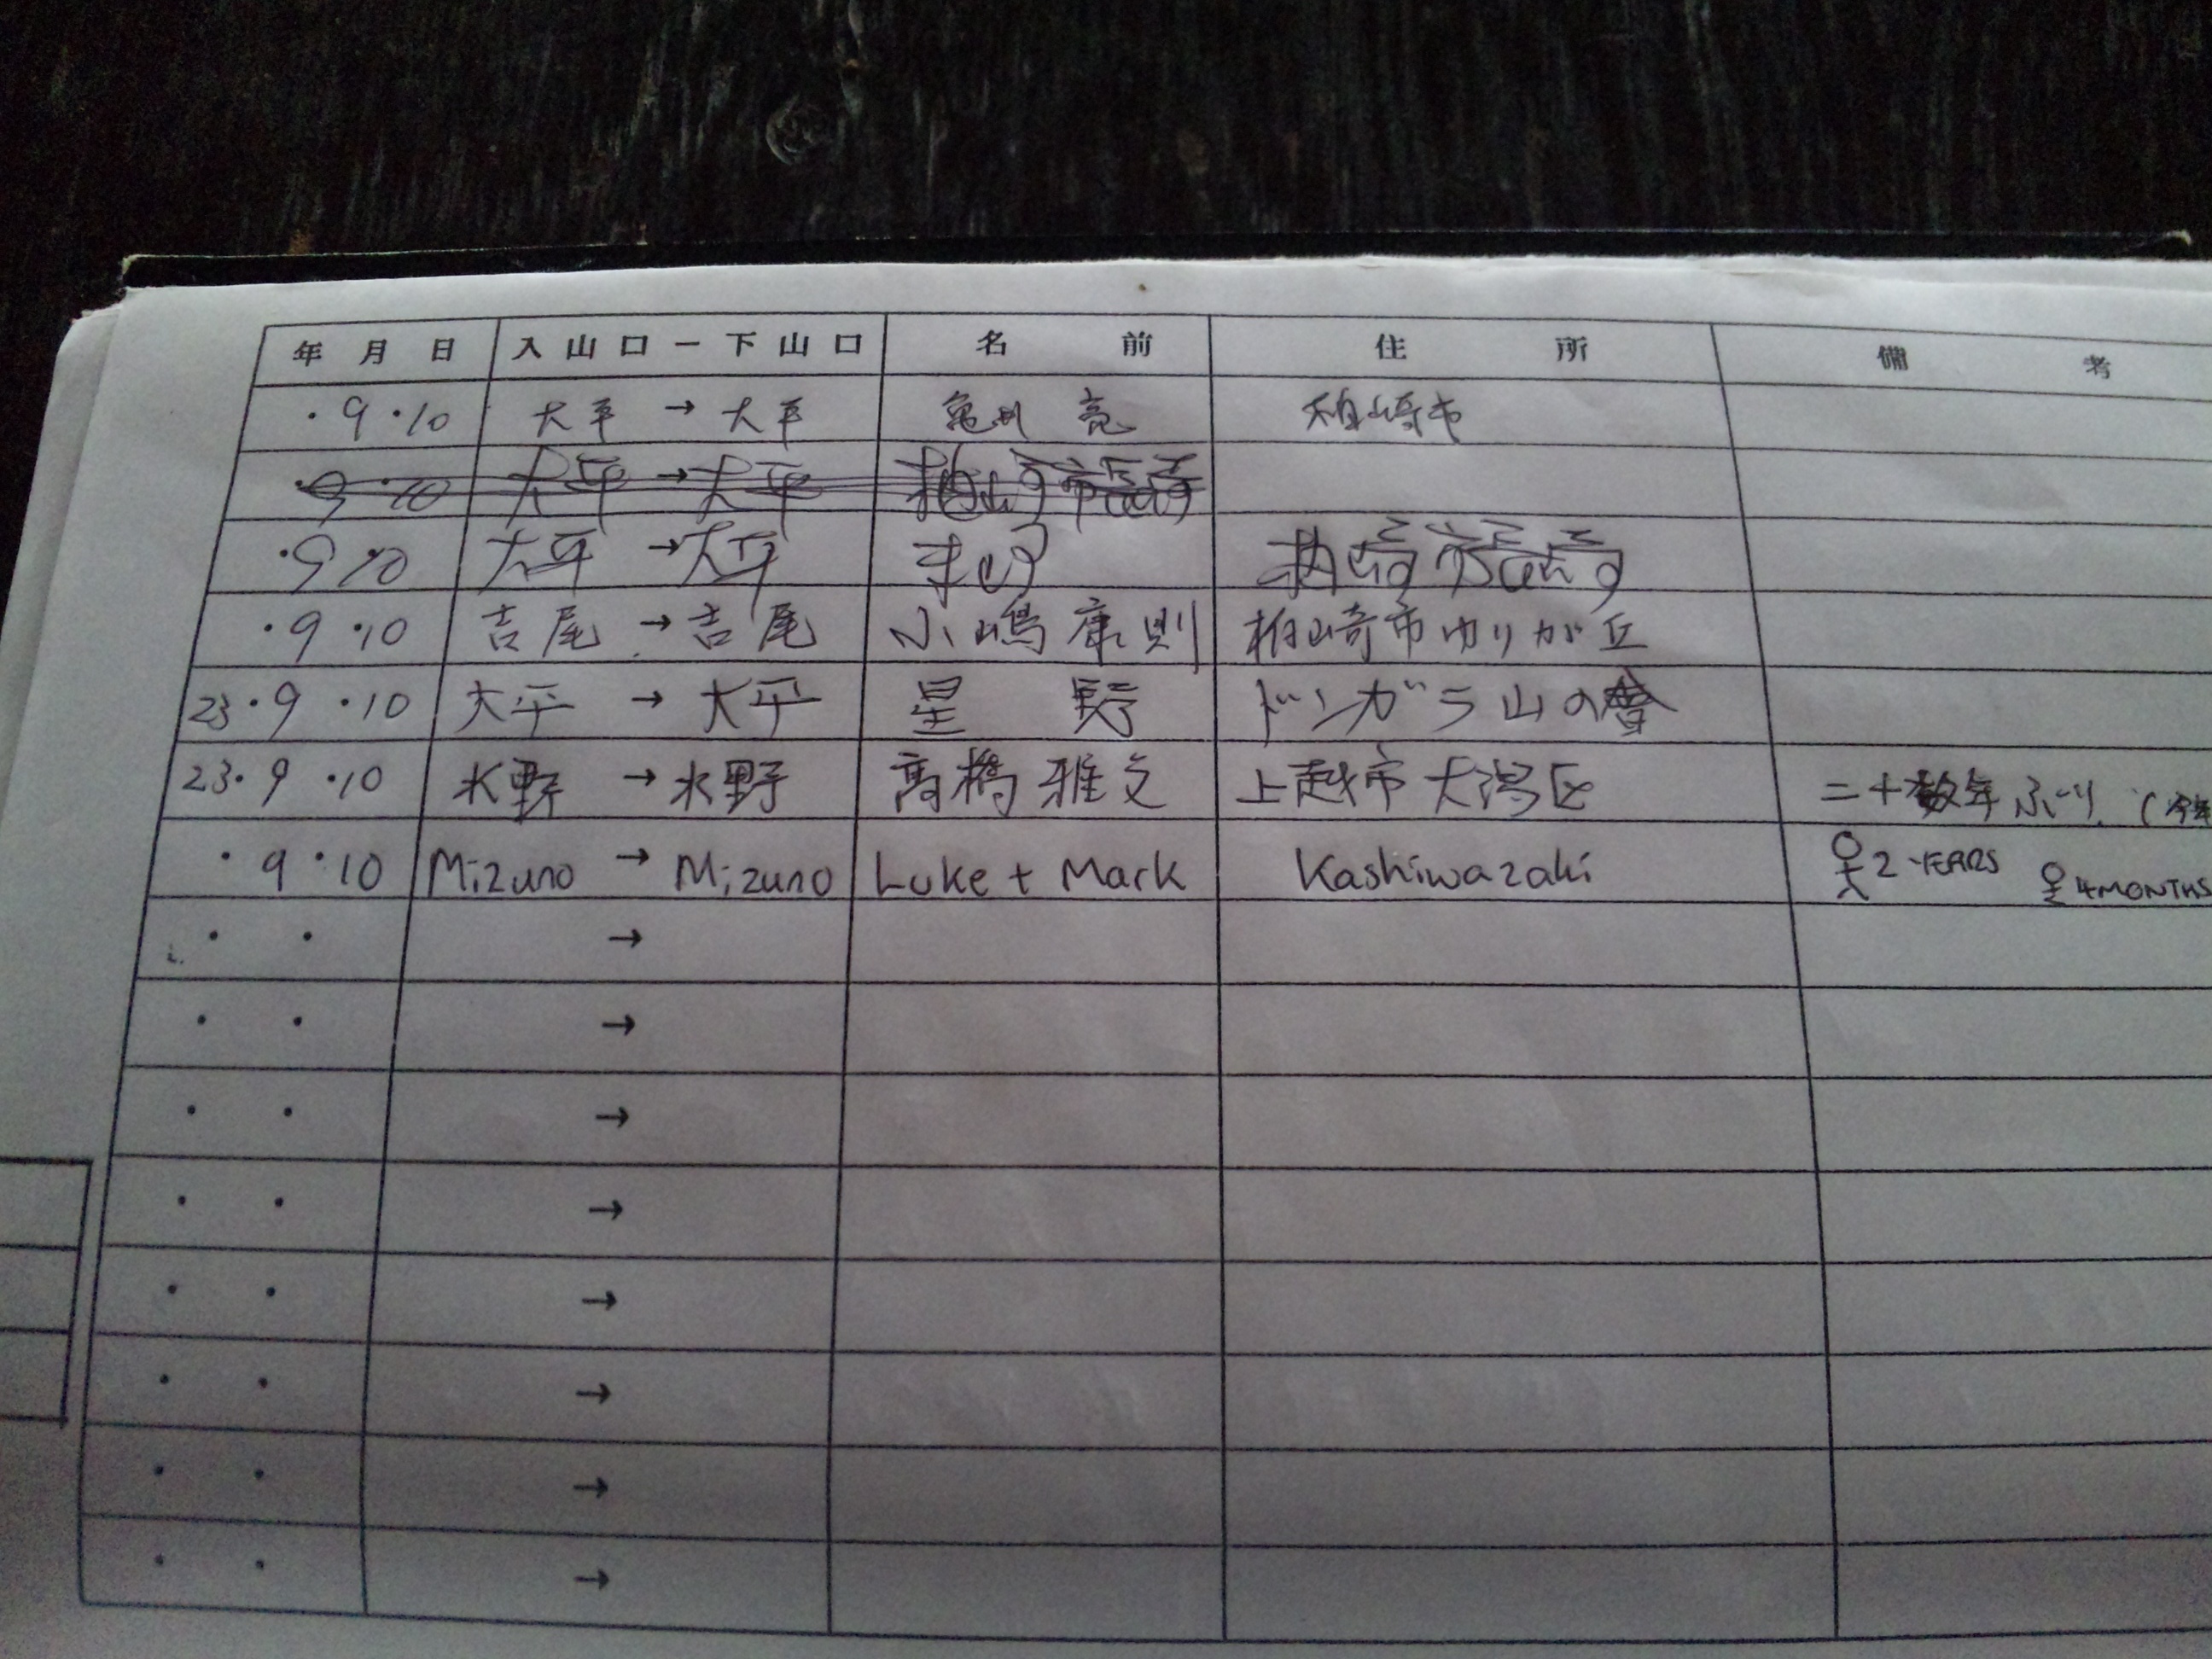 年 月 日 入山口ー下山口 名 前 住 所 備 考
・9・10 大平 → 大平 亀川 亮 柏崎市
・9・10 大平 → 大平
・9・10 大平 → 大平
・9・10 吉尾 → 吉尾 小嶋康則 柏崎市ゆりが丘
23・9・10 大平 → 大平 星 野 ドンガラ山の会
23・9・10 水野 → 水野 高橋雅文 上越市大潟区 二十数年ぶり
・9・10 Mizuno → Mizuno Luke + Mark Kashiwazaki 2 YEARS 4 MONTHS
・ ・ →
・ ・ →
・ ・ →
・ ・ →
・ ・ →
・ ・ →
・ ・ →
・ ・ →